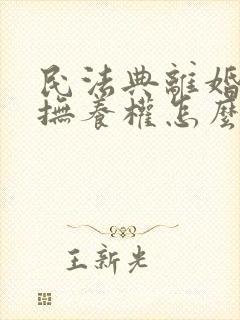 民法典離婚
撫養權怎麼
王新光